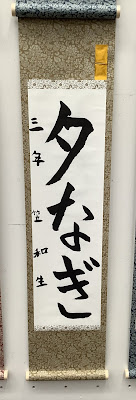 夕なぎ
三年 笠和生